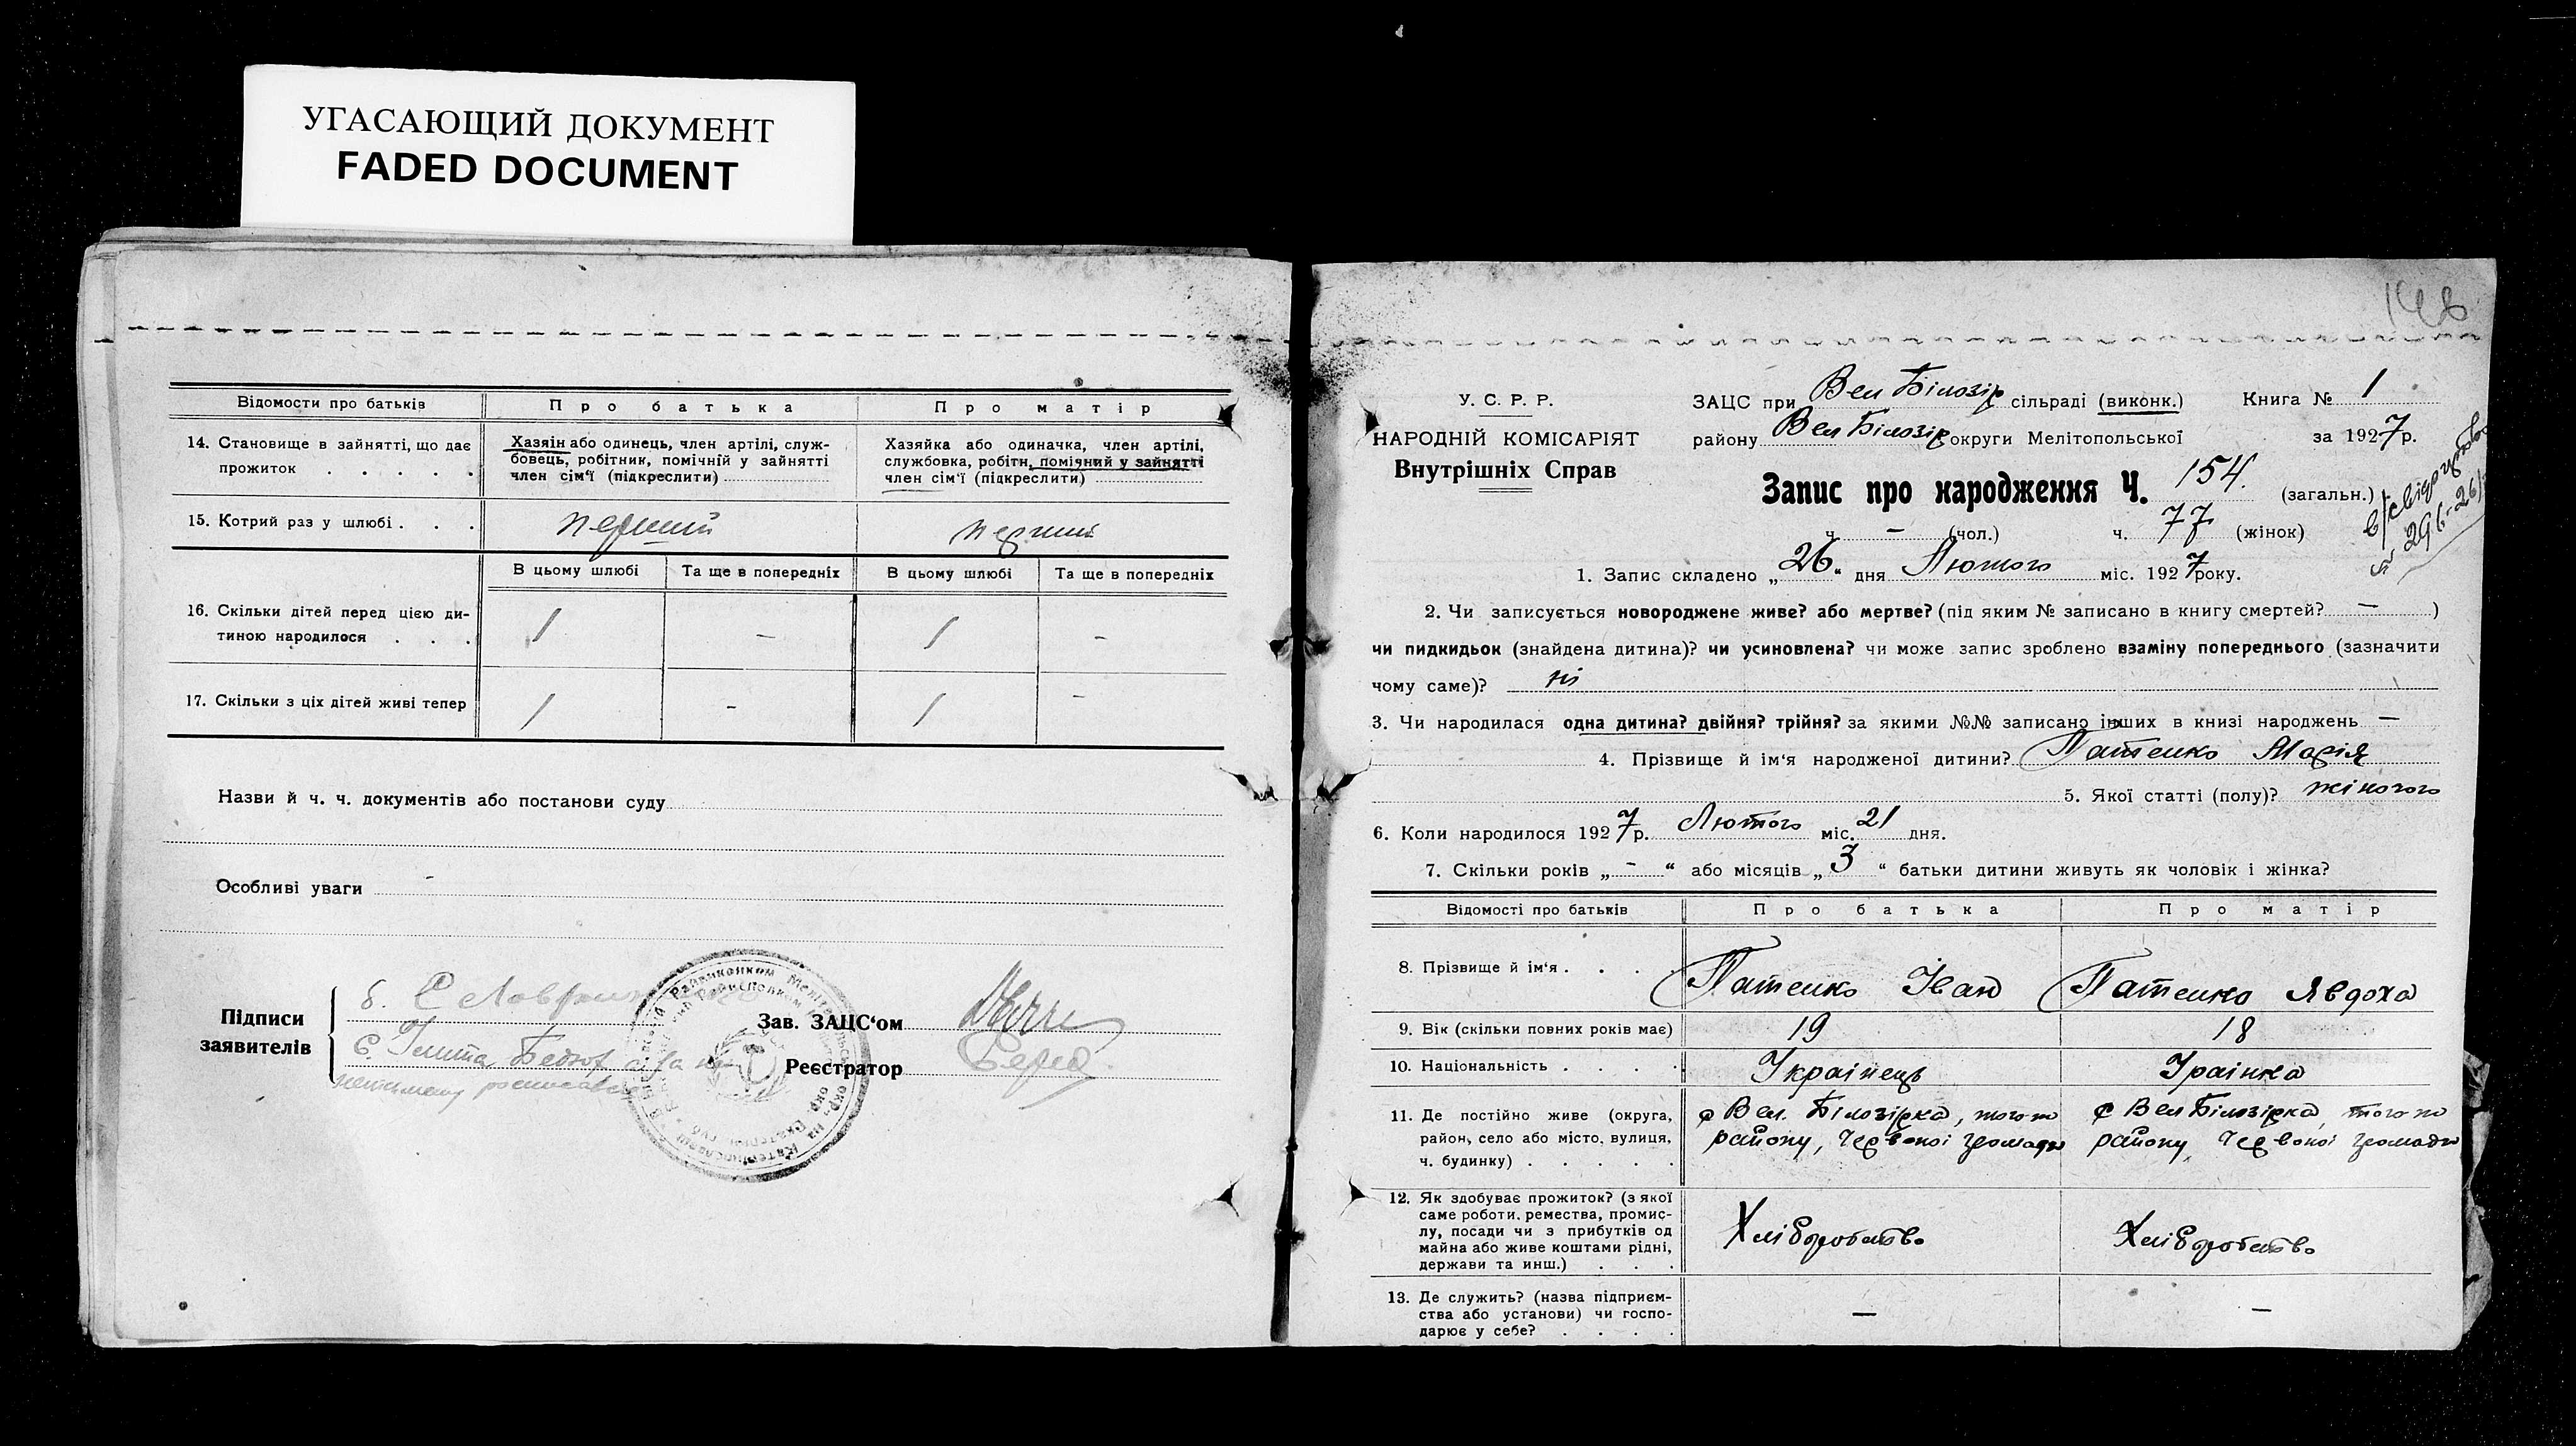 УГАСАЮЩИЙ ДОКУМЕНТ
FADED DOCUMENT
Відомости про батьків
Про батька
Про матір
14. Становище в зайнятті, що дає
прожиток . . . . .
Хазяін або одинець, член артілі, служ-
бовець, робітник, помічній у зайнятті
член сім'ї (підкреслити)
Хазяйка або одиначка, член артілі,
службовка, робітн, помічний у зайнятті
член сім'ї (підкреслити)
15. Котрий раз у шлюбі . . .
перший
перший
В цьому шлюбі
Та ще в попередніх
В цьому шлюбі
Та ще в попередніх
16. Скільки дітей перед цією ди-
тиною народилося . . .
1 - 1 -
17. Скільки з ціх дітей живі тепер
1 - 1 -
Назви й ч. ч. документів або постанови суду
Особливі уваги -
Підписи
заявителів
Зав. ЗАЦС'ом
Реєстратор
148
У. С. Р. Р.
НАРОДНІЙ КОМІСАРІЯТ
Внутрішніх Справ
ЗАЦС при Вел Білозір сільраді (виконк.) Книга № 1
району Вел Білозір округи Мелітопольської за 1927 р.
Запис про народження Ч. 154. (загальн.)
ч. - (чол.) ч. 77 (жінок)
1. Запис складено „26“ дня Лютого міс. 1927 року.
2. Чи записується новороджене живе? або мертве? (під яким № записано в книгу смертей? — )
чи пидкидьок (знайдена дитина)? чи усиновлена? чи може запис зроблено взаміну попереднього (зазначити
чому саме)? ні
3. Чи народилася одна дитина? двійня? трійня? за якими №№ записано інших в книзі народжень —
4. Прізвище й ім'я народженої дитини? Патенко Марія
5. Якої статті (полу)? жіночого
6. Коли народилося 1927 р. Лютого міс. 21 дня.
7. Скільки років „-“ або місяців „3“ батьки дитини живуть як чоловік і жінка?
Відомості про батьків
Про батька
Про матір
8. Прізвище й ім'я . . .
Патенко Іван
Патенко Явдоха
9. Вік (скільки повних років має)
19
18
10. Національність . . . .
Українець
Український
11. Де постійно живе (округа,
район, село або місто, вулиця,
ч. будинку) . . . . .
с Вел. Білозірка, того ж
району, Червоної громади
с Вел Білозірка, того ж
району, Червоної громади
12. Як здобуває прожиток? (з якої
саме роботи, ремества, промис-
лу, посади чи з прибутків од
майна або живе коштами рідні,
держави та инш.) . . .
Хліборобство
Хліборобство
13. Де служить? (назва підприєм-
ства або установи) чи госпо-
дарює у себе? . . . .
—
—